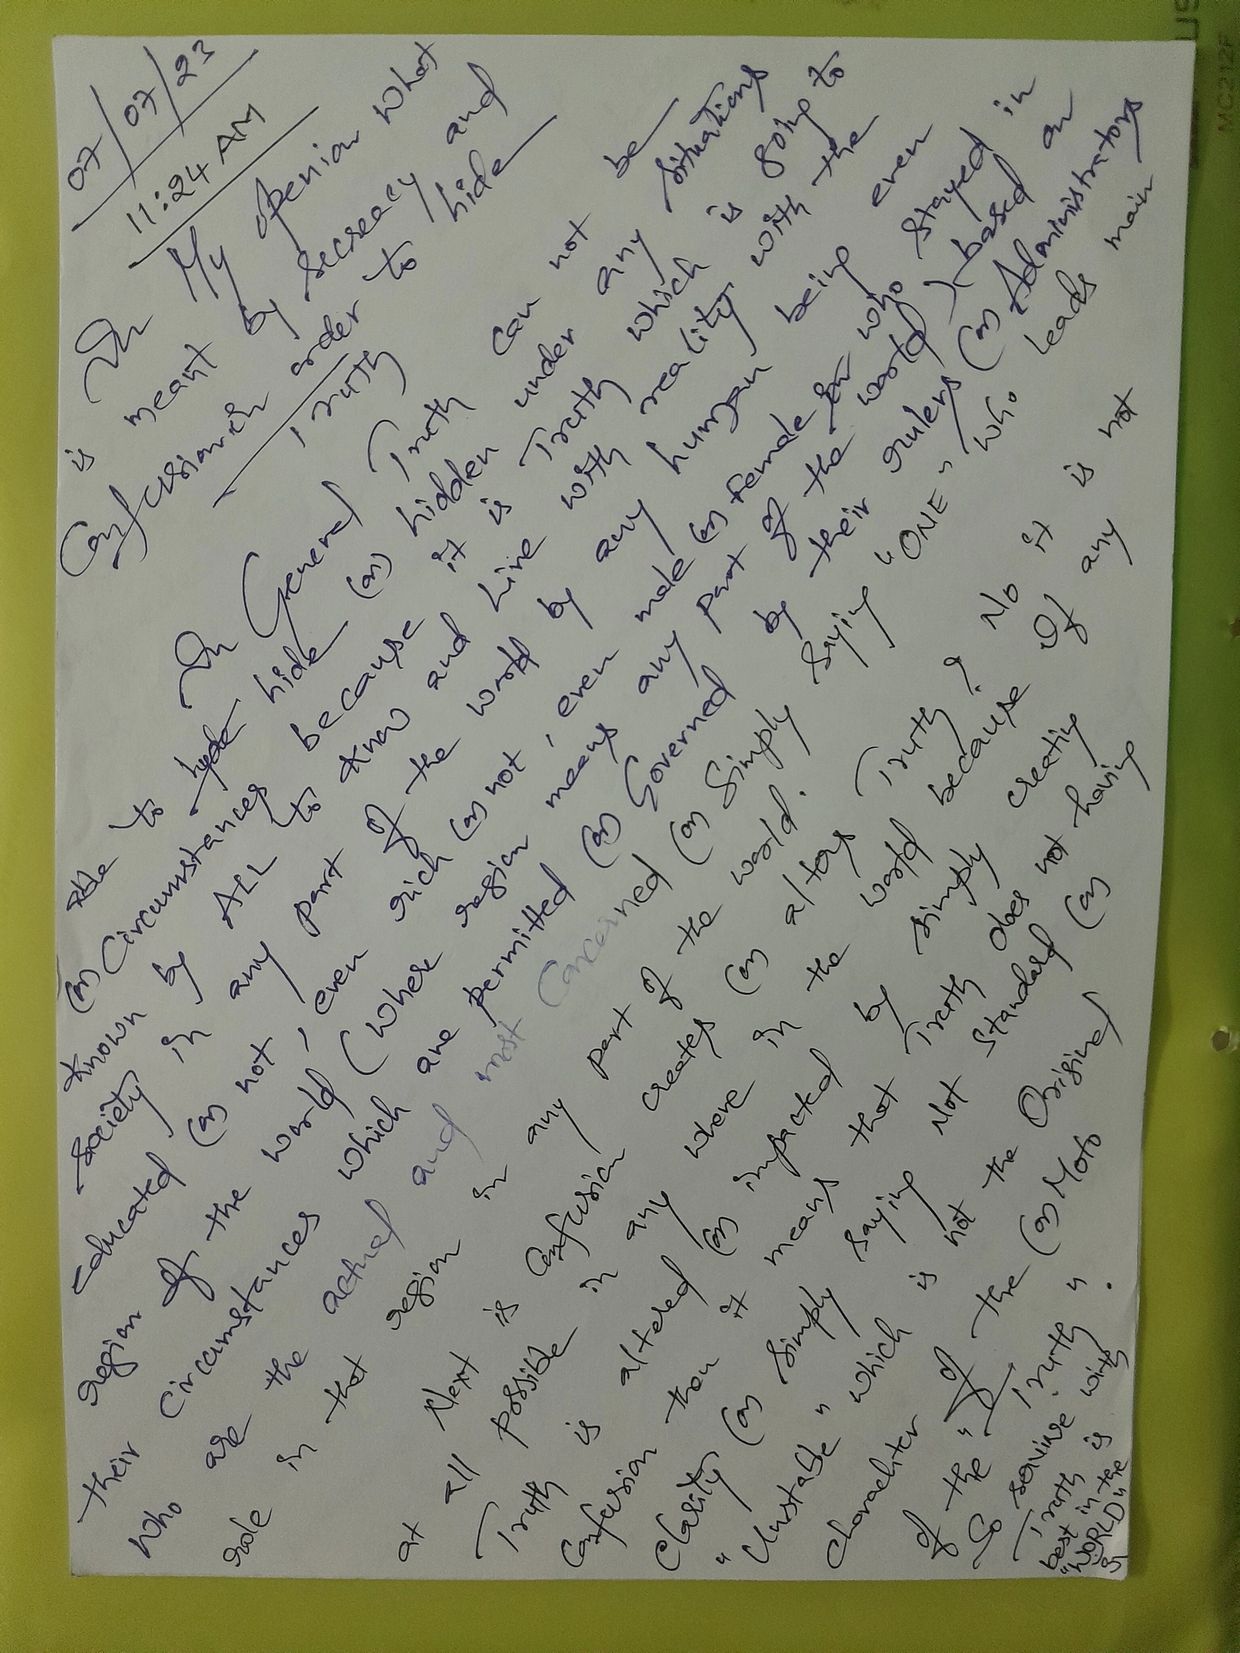 07/07/23
11:24 AM
In My openion what
is meant by secreacy and
Confusion in order to hide
Truth
In General Truth can not be
able to hyde hide (or) hidden under any situations
(or) Circumstances because it is Truth which is going to
Known by ALL to know and Live with reality with the
Society in any part of the world by any human being even
educated (or) not, even rich (or) not, even male (or) female
region of the world (where region means any part of the world) who stayed in
their circumstances which are permitted (or) Governed by their rulers (or) Administrators based on
who are the actual and most Concerned (or) Simply saying "ONE" who leads main
role in that region in any part of the world.
Next is Confusion creates (or) altors Truth? No it is not
at all possible in any where in the world because If any
Truth is altered (or) impacted by simply creating
Confusion then it means that Truth does not having
Clarity (or) Simply saying Not Standard (or)
"Unstable" which is not the Original
charachter of the (or) Moto
of the "Truth".
So servive with
Truth is
best in the
"WORLD"